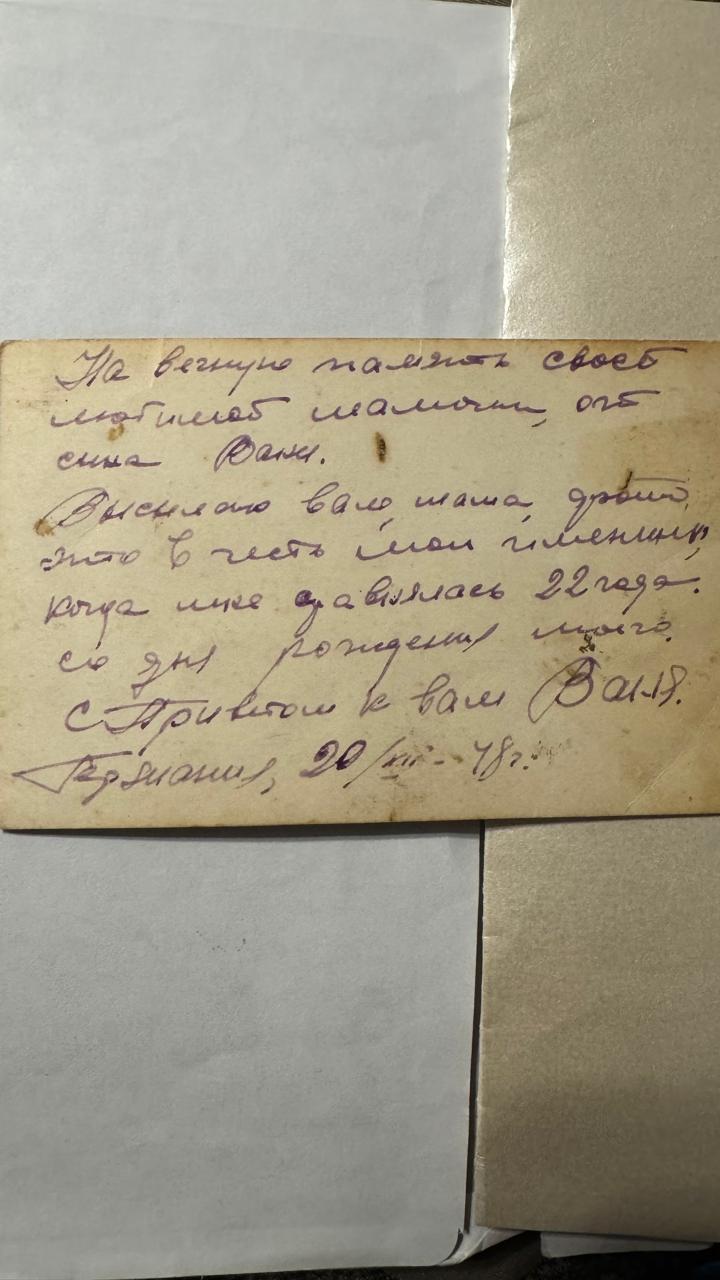 На вечную память своей
любимой мамочки, от
сина Вани.
Высилаю вам, мама, фото,
это в честь моїх іменины,
когда мне сравнялась 22 года.
со дня рождения моего.
С Приветом к вам Ваня.
Германия, 20/XII - 48 г.